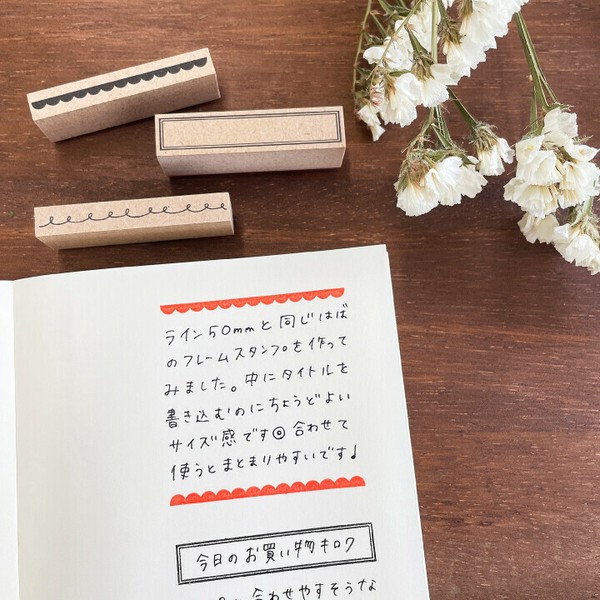 ライン50mmと同じはば
のフレームスタンプを作って
みました。中にタイトルを
書き込むのにちょうどよい
サイズ感です◎合わせて
使うとまとまりやすいです♩
今日のお買い物キロク
合わせやすそうな